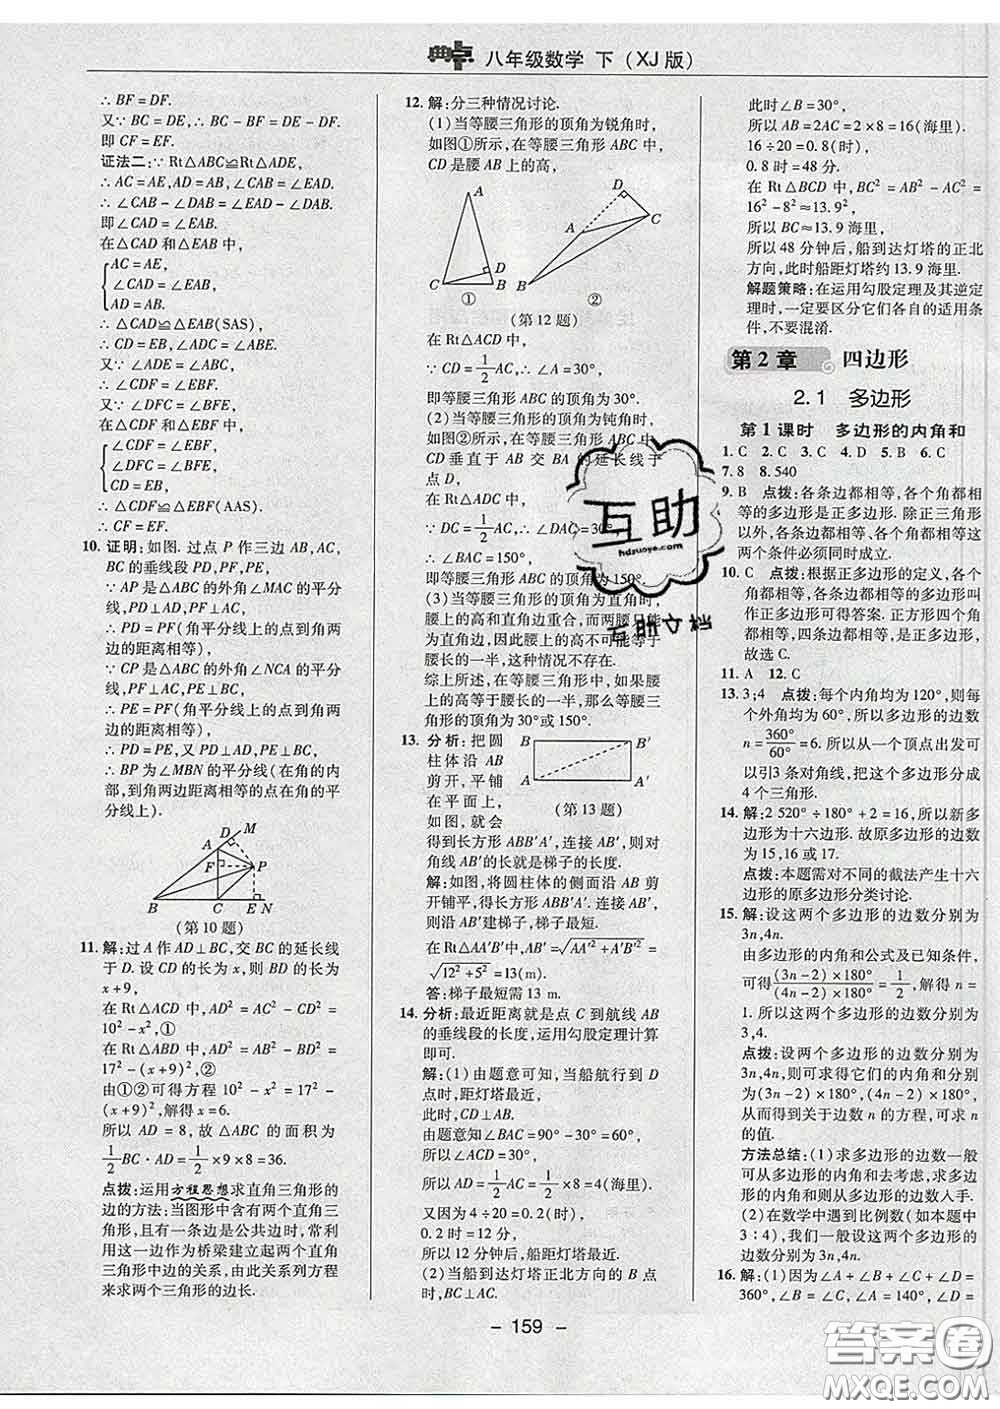 典点 八年级数学 下(XJ版)
∴BF=DF.
又∵BC=DE,∴BC-BF=DE-DF.
即CF=EF.
证法二:∵Rt△ABC≌Rt△ADE,
∴AC=AE,AD=AB,∠CAB=∠EAD.
∴∠CAB-∠DAB=∠EAD-∠DAB.
即∠CAD=∠EAB.
在△CAD和△EAB中,
AC=AE,
∠CAD=∠EAB,
AD=AB,
∴△CAD≌△EAB(SAS),
∴CD=EB,∠ADC=∠ABE.
又∵∠ADE=∠ABC,
∴∠CDF=∠EBF.
又∵∠DFC=∠BFE,
∴在△CDF和△EBF中,
∠CDF=∠EBF,
∠DFC=∠BFE,
CD=EB,
∴△CDF≌△EBF(AAS).
∴CF=EF.
10. 证明:如图.过点P作三边AB,AC,
BC的垂线段PD,PF,PE,
∵AP是△ABC的外角∠MAC的平分
线,PD⊥AD,PF⊥AC,
∴PD=PF(角平分线上的点到角两
边的距离相等),
∵CP是△ABC的外角∠NCA的平分
线,PF⊥AC,PE⊥BC,
∴PE=PF(角平分线上的点到角两
边的距离相等),
∴PD=PE,又PD⊥AB,PE⊥BC,
∴BP为∠MBN的平分线(在角的内
部,到角两边距离相等的点在角的平
分线上).
D M
A
F P
B C E N
(第10题)
11. 解:过A作AD⊥BC,交BC的延长线
于D.设CD的长为x,则BD的长为
x+9,
在Rt△ACD中,AD²=AC²-CD²=
10²-x²,①
在Rt△ABD中,AD²=AB²-BD²=
17²-(x+9)²,②
由①②可得方程10²-x²=17²-
(x+9)²,解得x=6.
所以AD=8,故△ABC的面积为
1/2 BC·AD=1/2×9×8=36.
点拨:运用方程思想求直角三角形的
边的方法:当图形中含有两个直角三
角形,且有一条边是公共边时,常利
用这一边作为桥梁建立起两个直角
三角形中边的关系,由此关系列方程
来求两个三角形的边长.
12. 解:分三种情况讨论.
(1)当等腰三角形的顶角为锐角时,
如图①所示,在等腰三角形ABC中,
CD是腰AB上的高,
A D
A C
C D B B
① ②
(第12题)
在Rt△ACD中,
∵CD=1/2 AC,∴∠A=30°,
即等腰三角形ABC的顶角为30°;
(2)当等腰三角形的顶角为钝角时,
如图②所示,在等腰三角形ABC中,
CD垂直于AB交BA的延长线于
点D,
在Rt△ADC中,
∵DC=1/2 AC,∴∠DAC=30°,
∴∠BAC=150°,
即等腰三角形的顶角为150°;
(3)当等腰三角形的顶角为直角时,
腰上的高与腰边重合,而两腰只能
为直角边,因此腰上的高不可能等于
腰长的一半,这种情况不存在.
综上所述,在等腰三角形中,如果腰
上的高等于腰长的一半,那么等腰三
角形的顶角为30°或150°.
13. 分析:把圆
柱体沿AB
剪开,平铺
在平面上,
如图,就会
B B′
A A′
(第13题)
得到长方形ABB′A′,连接AB′,则对
角线AB′的长就是梯子的长度.
解:如图,将圆柱体的侧面沿AB剪
开铺平,得长方形ABB′A′.连接AB′,
沿AB′建梯子,梯子最短.
在Rt△AA′B′中,AB′=√(AA′²+A′B′²)
=√(12²+5²)=13(m).
答:梯子最短需13 m.
14. 分析:最近距离就是点C到航线AB
的垂线段的长度,运用勾股定理计算
即可.
解:(1)由题意可知,当船航行到D
点时,距灯塔最近,
此时,CD⊥AB.
由题意知∠BAC=90°-30°=60°,
所以∠ACD=30°.
所以AD=1/2 AC=1/2×8=4(海里).
又因为4÷20=0.2(时)=12分,
所以12分钟后,船距灯塔最近.
(2)当船到达灯塔正北方向的B点
时,BC⊥AC.
此时∠B=30°,
所以AB=2AC=2×8=16(海里).
16÷20=0.8(时),
0.8时=48分.
在Rt△BCD中,BC²=AB²-AC²=
16²-8²≈13.9²,
所以BC≈13.9海里.
所以48分钟后,船到达灯塔的正北
方向,此时船距灯塔约13.9海里.
解题策略:在运用勾股定理及其逆定
理时,一定要区分它们各自的适用条
件,不要混淆.
第2章 四边形
2.1 多边形
第1课时 多边形的内角和
1. C 2. C 3. C 4. D 5. B 6. C
7. 8 8. 540
9. B 点拨:各条边都相等,各个角都相
等的多边形是正多边形.除正三角形
以外,各条边都相等、各个角都相等这
两个条件必须同时成立.
10. C 点拨:根据正多边形的定义,各个
角都相等、各条边都相等的多边形叫
作正多边形可得答案.正方形四个角
都相等,四条边都相等,是正多边形,
故选C.
11. A 12. C
13. 3;4 点拨:每个内角均为120°,则每
个外角均为60°,所以多边形的边数
n=360°/60°=6.所以从一个顶点出发可
以引3条对角线,把这个多边形分成
4个三角形.
14. 解:2 520°÷180°+2=16,所以新多
边形为十六边形.故原多边形的边数
为15,16或17.
点拨:本题需对不同的截法产生十六
边形的原多边形分类讨论.
15. 解:设这两个多边形的边数分别为
3n,4n.
由多边形的内角和公式及已知条件,
可得(3n-2)×180°/(4n-2)×180°=1/2,解得n=
1.所以这两个多边形的边数分别为
3,4.
点拨:设两个多边形的边数分别为
3n,4n,则可求得它们的内角和分别
为(3n-2)×180°,(4n-2)×180°,
从而得到关于边数n的方程,可求n
的值.
方法总结:(1)求多边形的边数一般
可从多边形的内角和去考虑,求多边
形的内角和则从多边形的边数入手.
(2)在数学中遇到比例数(如本题中
3∶4),我们一般设两个多边形的
边数分别为3n,4n.
16. 解:(1)因为∠A+∠B+∠C+∠D=
360°,∠B=∠C,∠A=140°,∠D=
- 159 -
互助
hdzuoye.com
答案圈
MXQE.COM